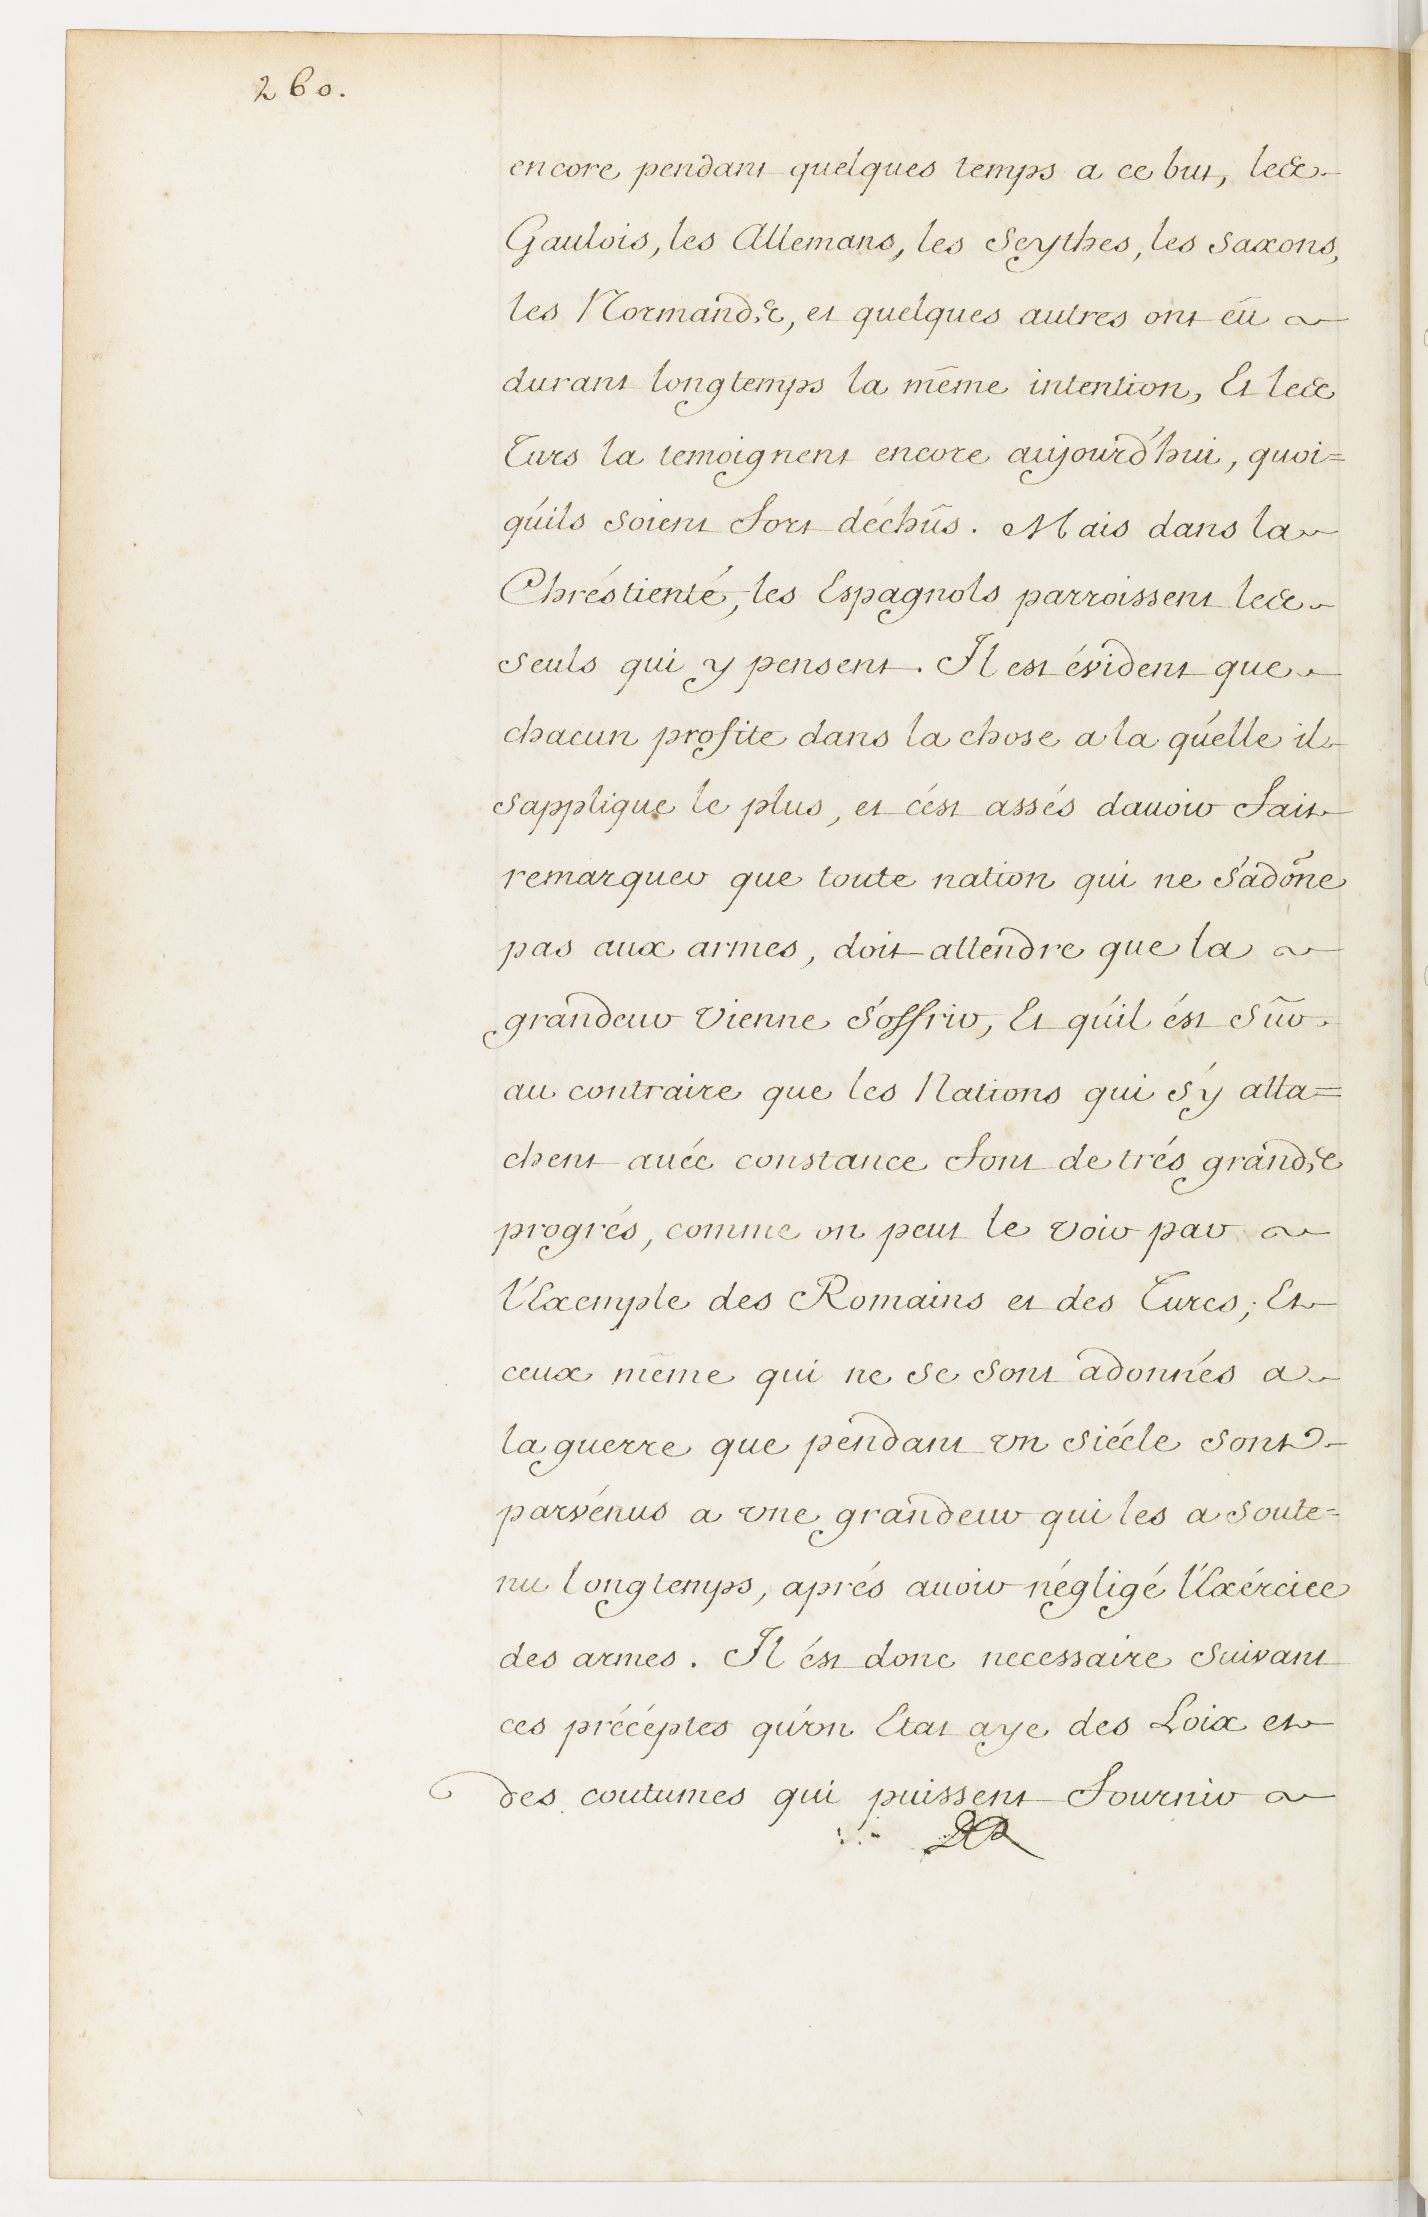 260.
encore pendant quelques temps a ce but, les
Gaulois, les Allemans, les Scythes, les Saxons,
les Normands, et quelques autres ont eû
durant longtemps la même intention, Et les
Turs la temoignent encore aujourd'hui, quoi=
qu'ils soient fort déchûs. Mais dans la
Chréstienté, les Espagnols parroissent les
seuls qui y pensent. Il est évident que
chacun profite dans la chose a la qu'elle il
s'applique le plus, et c'ést assés d'avoir fait
remarquer que toute nation qui ne s'adõne
pas aux armes, doit attendre que la
grandeur vienne s'offrir, Et qu'il ést sûr
au contraire que les Nations qui s'y atta=
chent avéc constance font de trés grands
progrés, comme on peut le voir par
l'Exemple des Romains et des Turcs; Et
ceux même qui ne se sont adonnés a
la guerre que pendant vn siécle sont
parvénus a vne grandeur qui les a soute=
nu longtemps, aprés auoir négligé l'Exércice
des armes. Il ést donc necessaire suivant
ces précéptes qu'vn Etat aye des Loix et
des coutumes qui puissent fournir